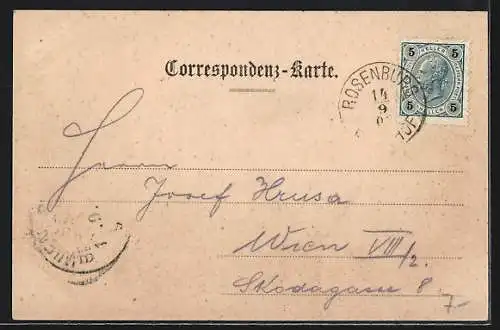 Correspondenz-Karte.
5 HELLER 5
5 5
ROSENBURG
14
9
Herrn
Josef Hrusa
Wien VIII/2
Skodagasse 8
7-